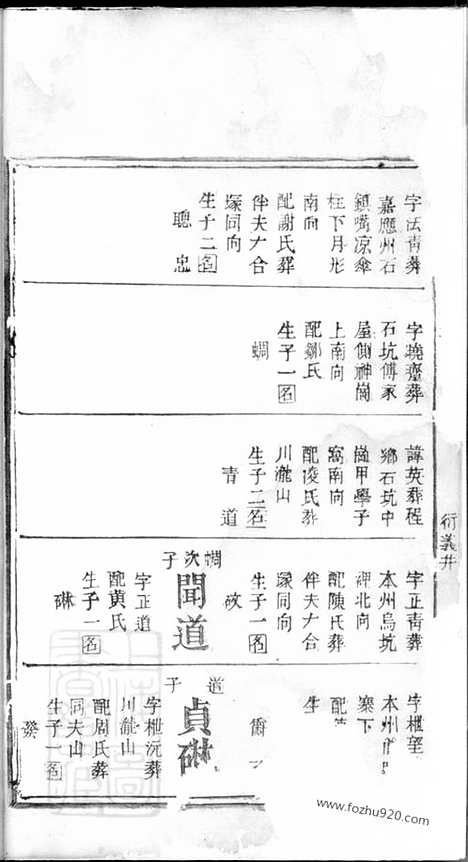 字法靑葬
嘉應州石
鎮嘴凉傘
柱下月形
南向
配謝氏葬
伴夫大合
塚同向
生子二名
聰忠
字曉齋葬
石坑傅家
屋側神崗
上南向
配鄒氏
生子一名
蜩
諱英葬程
鄉石坑中
崗甲學子
窩南向
配凌氏葬
川瀧山
生子二名
青道
衍義井
字正青葬
本州烏坑
裡北向
配陳氏葬
伴夫大合
塚同向
生子一名
蜩次子
聞道
字正道
配黄氏
生子一名
琳
字樾望
本州
寨下
配
生
道子
貞琳
字樾沅葬
川瀧山
配周氏葬
同夫山
生子一名
發
www.fozhu920.com